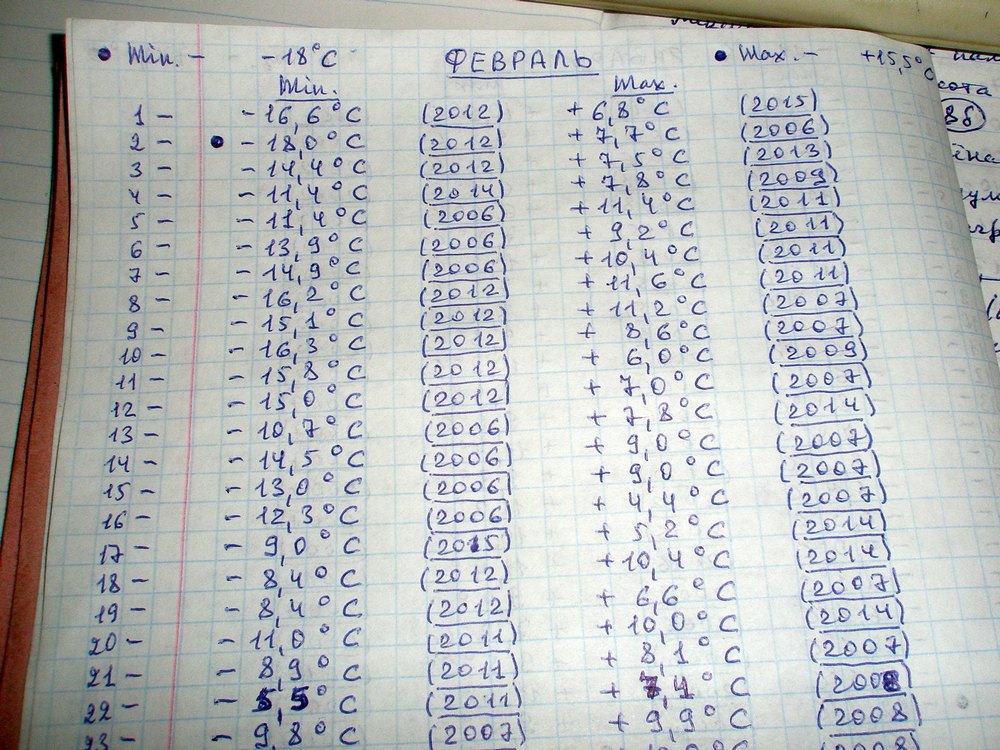 • Min. - -18°C ФЕВРАЛЬ • Max. - +15,5°C
Min. Max.
1 - -16,6°C (2012) +6,8°C (2015)
2 - • -18,0°C (2012) +7,7°C (2006)
3 - -14,4°C (2012) +7,5°C (2013)
4 - -11,4°C (2014) +7,8°C (2009)
5 - -11,4°C (2006) +11,4°C (2011)
6 - -13,9°C (2006) +9,2°C (2011)
7 - -14,9°C (2006) +10,4°C (2011)
8 - -16,2°C (2012) +11,6°C (2011)
9 - -15,1°C (2012) +11,2°C (2007)
10 - -16,3°C (2012) +8,6°C (2007)
11 - -15,8°C (2012) +6,0°C (2009)
12 - -15,0°C (2012) +7,0°C (2007)
13 - -10,7°C (2006) +7,8°C (2014)
14 - -14,5°C (2006) +9,0°C (2007)
15 - -13,0°C (2006) +9,0°C (2007)
16 - -12,3°C (2006) +4,4°C (2007)
17 - -9,0°C (2015) +5,2°C (2014)
18 - -8,4°C (2012) +10,4°C (2014)
19 - -8,4°C (2012) +6,6°C (2007)
20 - -11,0°C (2011) +10,0°C (2014)
21 - -8,9°C (2011) +8,1°C (2007)
22 - -5,5°C (2011) +7,1°C (2008)
23 - -9,8°C (2007) +9,9°C (2008)